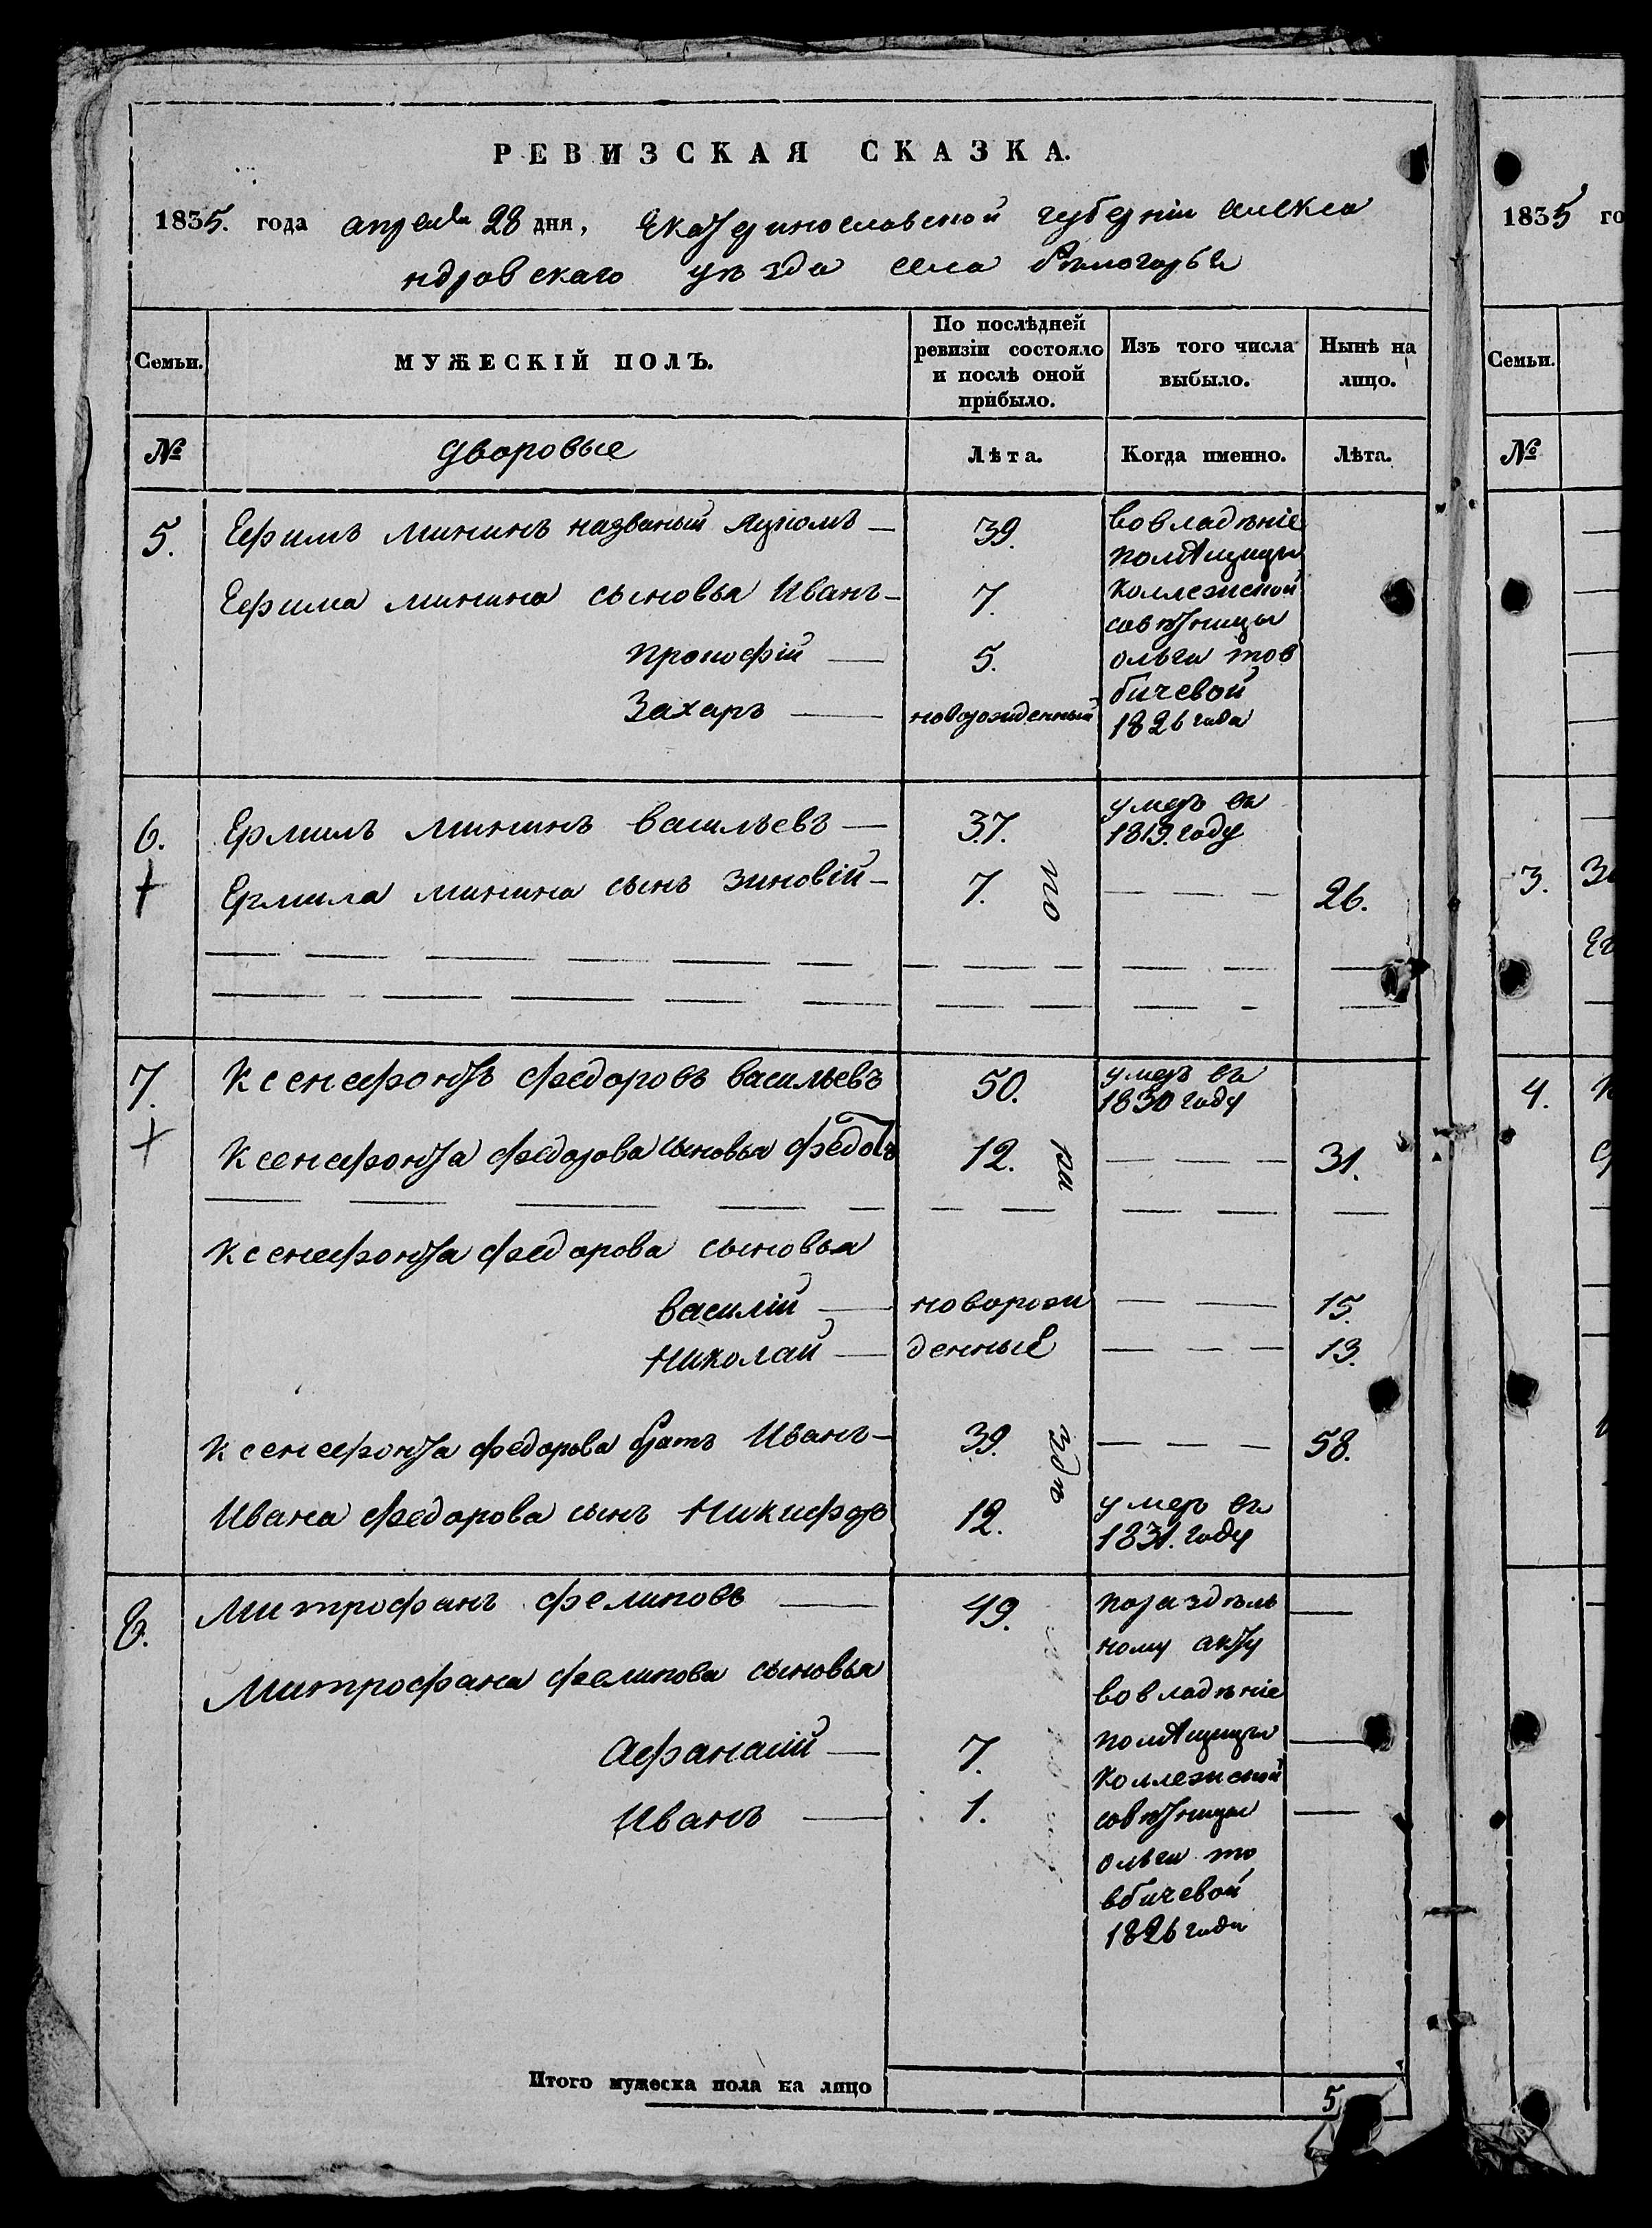 РЕВИЗСКАЯ СКАЗКА.
1835. года апреля 28 дня, Екатеринославской губерніи Алекса
ндровскаго уѣзда села Бѣлогорья
Семьи.
МУЖЕСКІЙ ПОЛЪ.
По послѣдней ревизіи состояло и послѣ оной прибыло.
Изъ того числа выбыло.
Нынѣ на лицо.
№
дворовые
Лѣта.
Когда именно.
Лѣта.
5. Ефимъ Мининъ названый — 39. во владѣніе
помѣщицы
Ефима Минина сыновья Иванъ — 7. Коллежской
совѣтницы
Прокофій — 5. Ольги Тов
бичевой
Захаръ — новорожденный 1826 года
6. Ермилъ Мининъ Васильевъ — 37. умеръ въ
1819. году
Ермила Минина сынъ Зиновій — 7. — — — 26.
то
7. Ксенефонтъ Федоровъ Васильевъ 50. умеръ въ
1830 году
Ксенефонта Федорова сыновья Федотъ 12. — — — 31.
Ксенефонта Федорова сыновья
Василій — новорож — — 15.
Николай — денные — — — 13.
Ксенефонта Федорова братъ Иванъ — 39. — — — 58.
Ивана Федорова сынъ Никифоръ 12. умеръ въ
1831. году
8. Митрофанъ Фелиповъ — 49. по раздѣль —
ному акту
Митрофана Фелипова сыновья во владѣніе
Афанасій — 7. помѣщицы —
Коллежской
Иванъ — 1. совѣтницы —
Ольги То
вбичевой
1826 года
Итого мужеска пола на лицо 5
1835 го
Семьи.
№
3.
4.